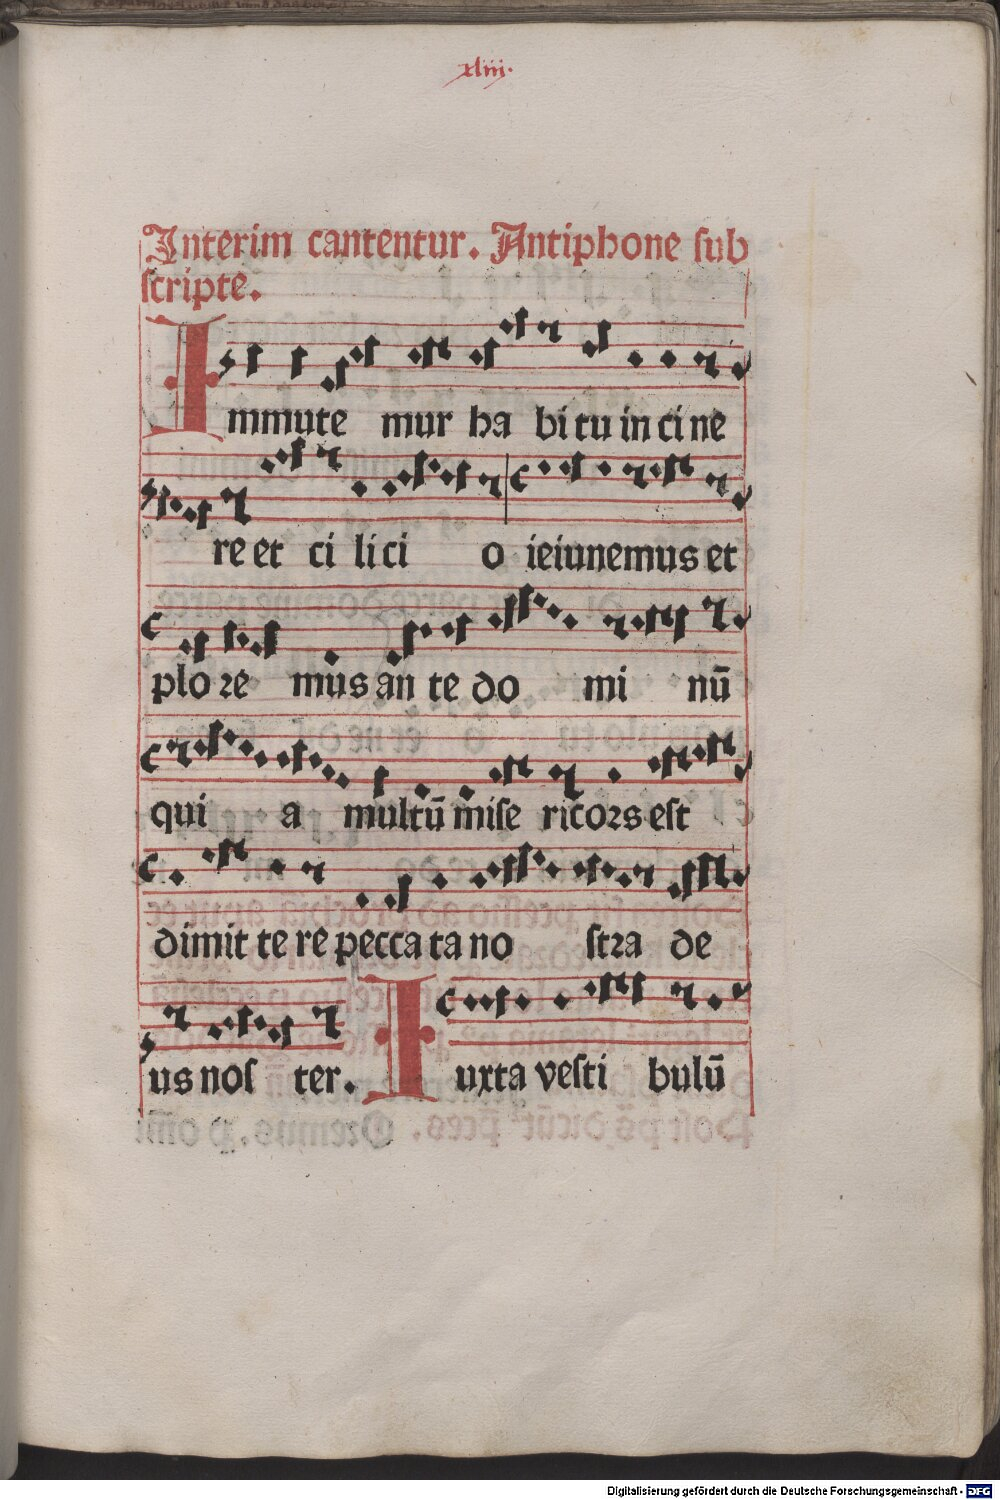 xliii.
Interim cantentur. Antiphone sub
scripte.
Immute mur ha bi tu in ci ne
re et ci li ci o ieiunemus et
plo re mus an te do mi nū
qui a multū mise ricors est
dimit te re pecca ta no stra de
us nos ter. Iuxta vesti bulū
Digitalisierung gefördert durch die Deutsche Forschungsgemeinschaft - DFG